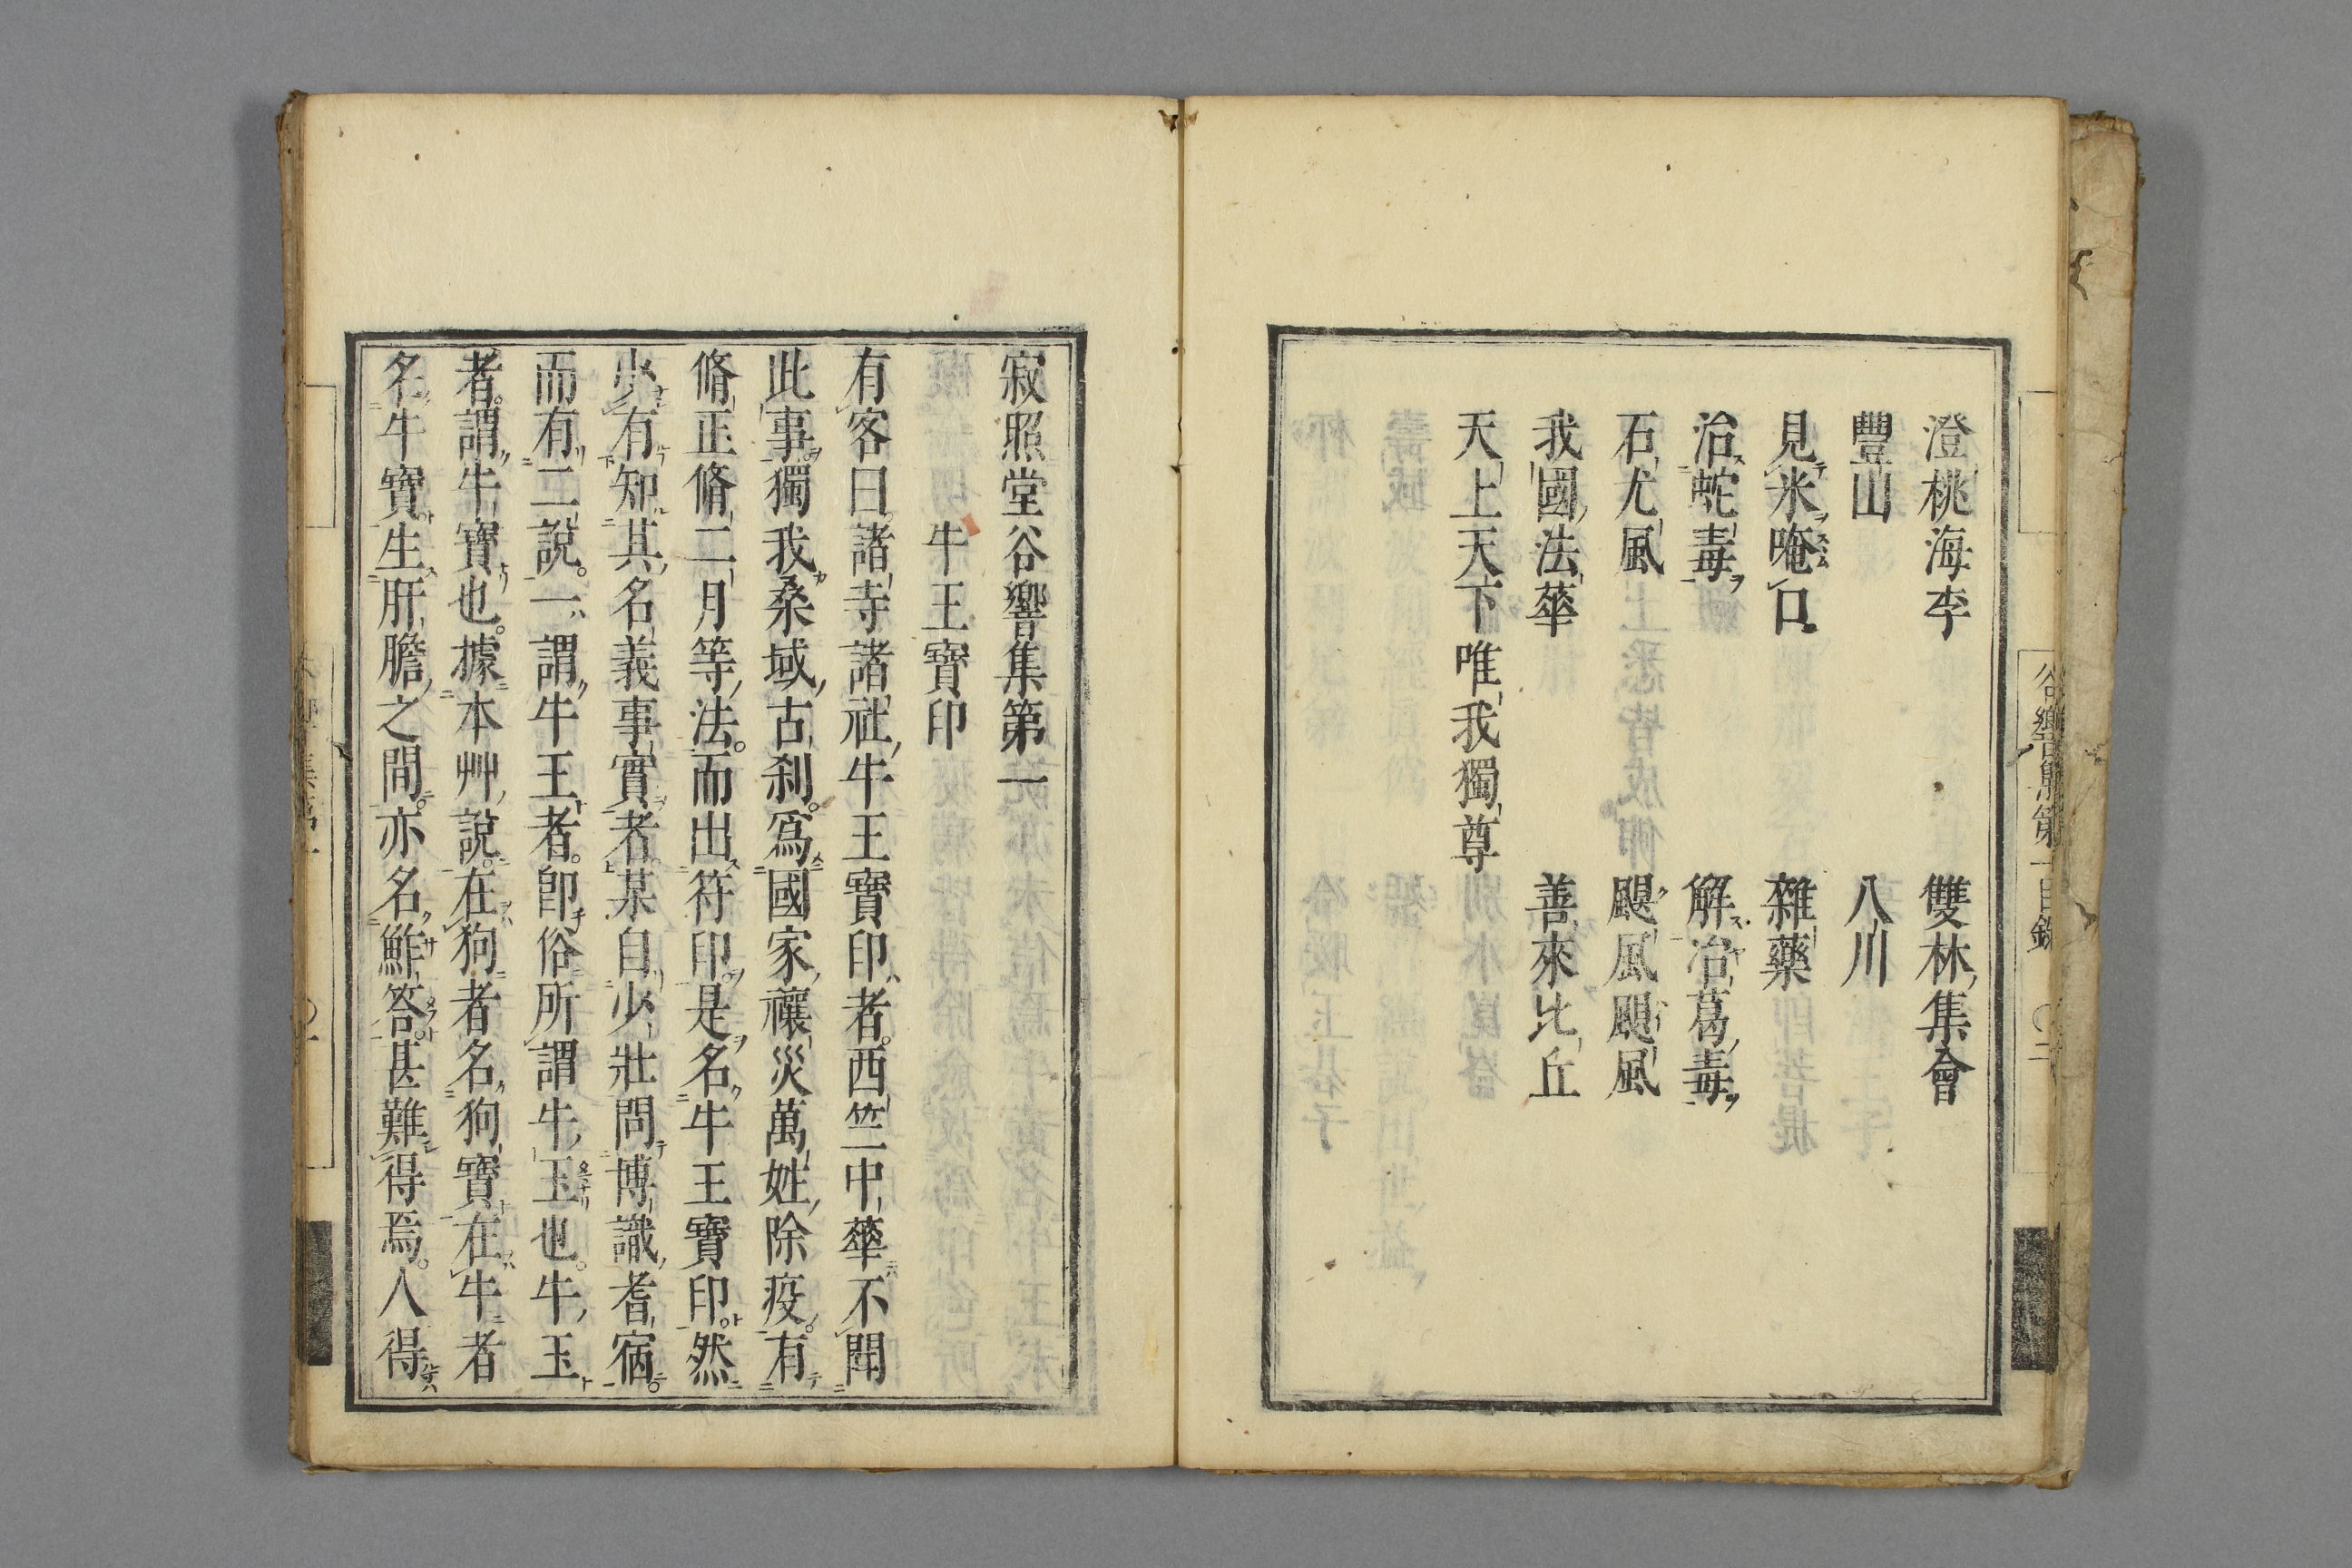 澄桃海李　雙林集會
豐山　八川
見氷唵口　雜藥
治蛇毒　解冶葛毒
石尤風　颶風颶風
我國法華　善來比丘
天上天下唯我獨尊
寂照堂谷響集第一
牛王寶印
有客曰。諸寺諸社牛王寶印者。西竺中華不聞
此事。獨我桑域古刹。爲國家禳災萬姓除疫。有
脩正脩二月等法。而出符印。是名牛王寶印。然
少有知其名義事實者。某自少壯問博識耆宿。
而有二說。一謂牛王者。卽俗所謂牛玉也。牛玉
者。謂牛寶也。據本艸說。在狗者名狗寶。在牛者
名牛寶。生肝膽之間。亦名鮓答。甚難得焉。人得